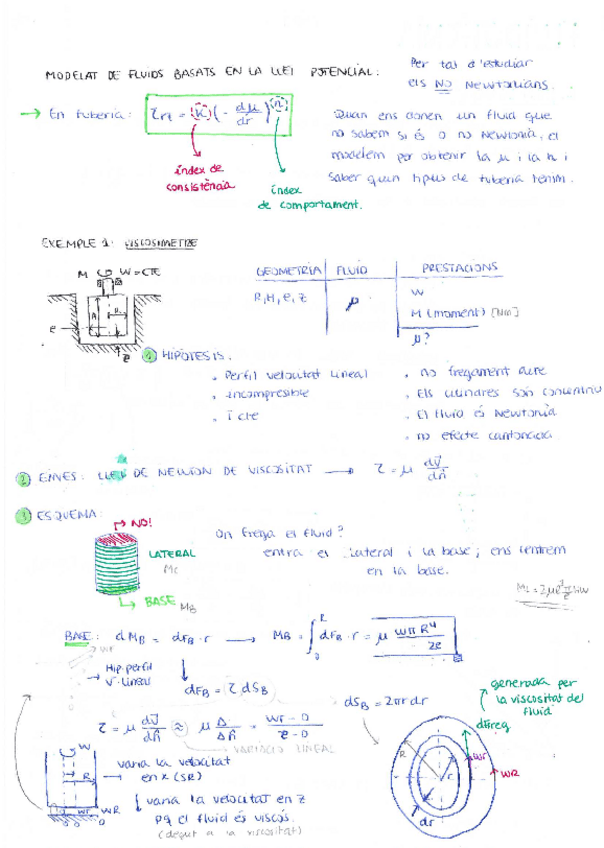 MODELAT DE FLUIDS BASATS EN LA LLEI POTENCIAL:
Per tal d'estudiar
els NO Newtonians.
→ En tuberia: τrx = (K) (- du/dr)^(n)
índex de
consistència
índex
de comportament.
Quan ens donen un fluid que
no sabem si és o no Newtonià, el
modelem per obtenir la μ i la n i
saber quin tipus de tuberia tenim.
EXEMPLE 1: VISCOSIMETRE
M W=CTE
R
H
e
z
GEOMETRIA | FLUID | PRESTACIONS
R, H, e, z | μ | W
M (moment) [Nm]
μ?
1 HIPÒTESIS:
. Perfil velocitat lineal
. incompresible
. T cte
. no fregament aire
. Els cilindres són concèntrics
. El fluid és Newtonià
. no efecte cantonada
2 EINES: LLEI DE NEWTON DE VISCOSITAT → τ = μ dV/dn
3 ESQUEMA:
NO!
LATERAL
BASE MB
On frega el fluid?
entra el lateral i la base; ens centrem
en la base.
BASE: dMB = dFB · r → MB = ∫₀ᴿ dFB · r = μ WπR⁴/2e
Hip. perfil
V. lineal
dFB = τ dSB
dSB = 2πr dr
τ = μ dV/dn ≈ μ Δ/Δn = Wr - 0/e - 0
VARIACIÓ LINEAL
generada per
la viscositat del
fluid
dFreg
Wr
WR
R
r
dr
W
R
Wr
WR
0 0 0 0
varia la velocitat
en x (SR)
varia la velocitat en z
pq el fluid és viscós.
(degut a la viscositat)